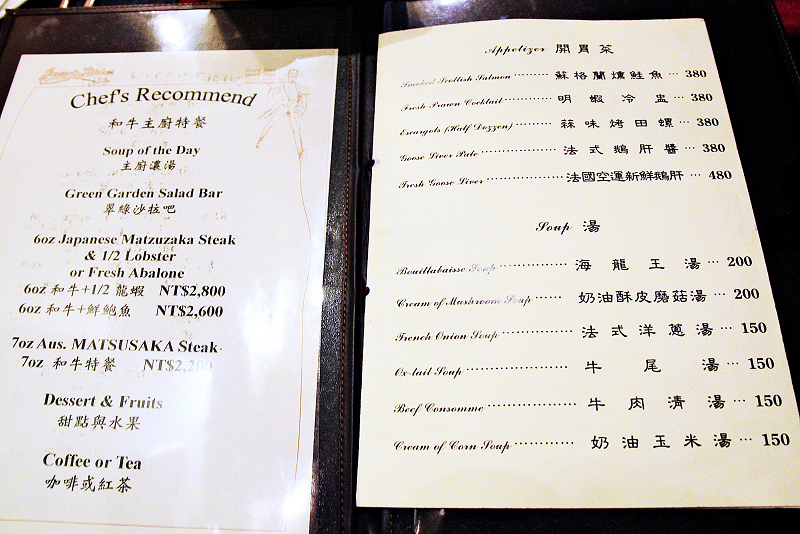 Chef's Recommend
和牛主廚特餐
Soup of the Day
主廚濃湯
Green Garden Salad Bar
翠綠沙拉吧
6oz Japanese Matzuzaka Steak
& 1/2 Lobster
or Fresh Abalone
6oz 和牛+1/2 龍蝦 NT$2,800
6oz 和牛+鮮鮑魚 NT$2,600
7oz Aus. MATSUSAKA Steak
7oz 和牛特餐 NT$2,200
Dessert & Fruits
甜點與水果
Coffee or Tea
咖啡或紅茶
Appetizer 開胃菜
Smoked Scottish Salmon ············ 蘇格蘭燻鮭魚 ··· 380
Fresh Prawn Cocktail ············ 明蝦冷盅 ··· 380
Escargots (Half Dozzen) ············ 蒜味烤田螺 ··· 380
Goose Liver Pate ············ 法式鵝肝醬 ··· 380
Fresh Goose Liver ············ 法國空運新鮮鵝肝 ··· 480
Soup 湯
Bouillabaisse Soup ············ 海龍王湯 ··· 200
Cream of Mushroom Soup ······ 奶油酥皮蘑菇湯 ··· 200
French Onion Soup ············ 法式洋蔥湯 ··· 150
Ox-tail Soup ············ 牛尾湯 ··· 150
Beef Consomme ············ 牛肉清湯 ··· 150
Cream of Corn Soup ············ 奶油玉米湯 ··· 150